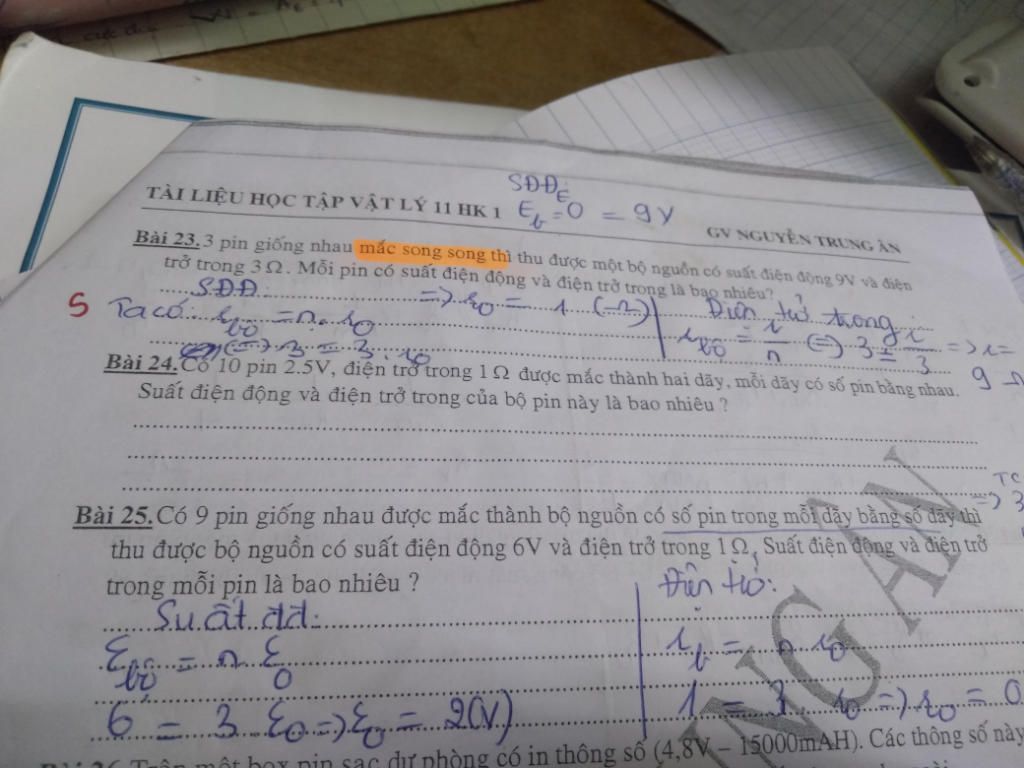 SĐĐ
TÀI LIỆU HỌC TẬP VẬT LÝ 11 HK 1
= 9V
GV NGUYỄN TRUNG ÂN
Bài 23. 3 pin giống nhau mắc song song thì thu được một bộ nguồn có suất điện động 9V và điện
trở trong 3 Ω. Mỗi pin có suất điện động và điện trở trong là bao nhiêu?
SĐĐ:
=> r0 = 1 (Ω)
Điện trở trong
S
Ta có: rbộ = n. r0
rbộ = r/n (=) 3 = r/3 => r =
(=) 3 = 3. r0
9 Ω
Bài 24. Có 10 pin 2.5V, điện trở trong 1 Ω được mắc thành hai dãy, mỗi dãy có số pin bằng nhau.
Suất điện động và điện trở trong của bộ pin này là bao nhiêu ?
=> 3
Bài 25. Có 9 pin giống nhau được mắc thành bộ nguồn có số pin trong mỗi dãy bằng số dãy thì
thu được bộ nguồn có suất điện động 6V và điện trở trong 1 Ω, Suất điện động và điện trở
trong mỗi pin là bao nhiêu ?
Suất đđ:
Điện trở:
Ɛbộ = n Ɛ0
rb = n r0
6 = 3 Ɛ0 => Ɛ0 = 2(V)
1 = 3 r0 => r0 = 0
NG AN
Bài 26 Trên một box pin sạc dự phòng có in thông số (4,8V – 15000mAH). Các thông số này